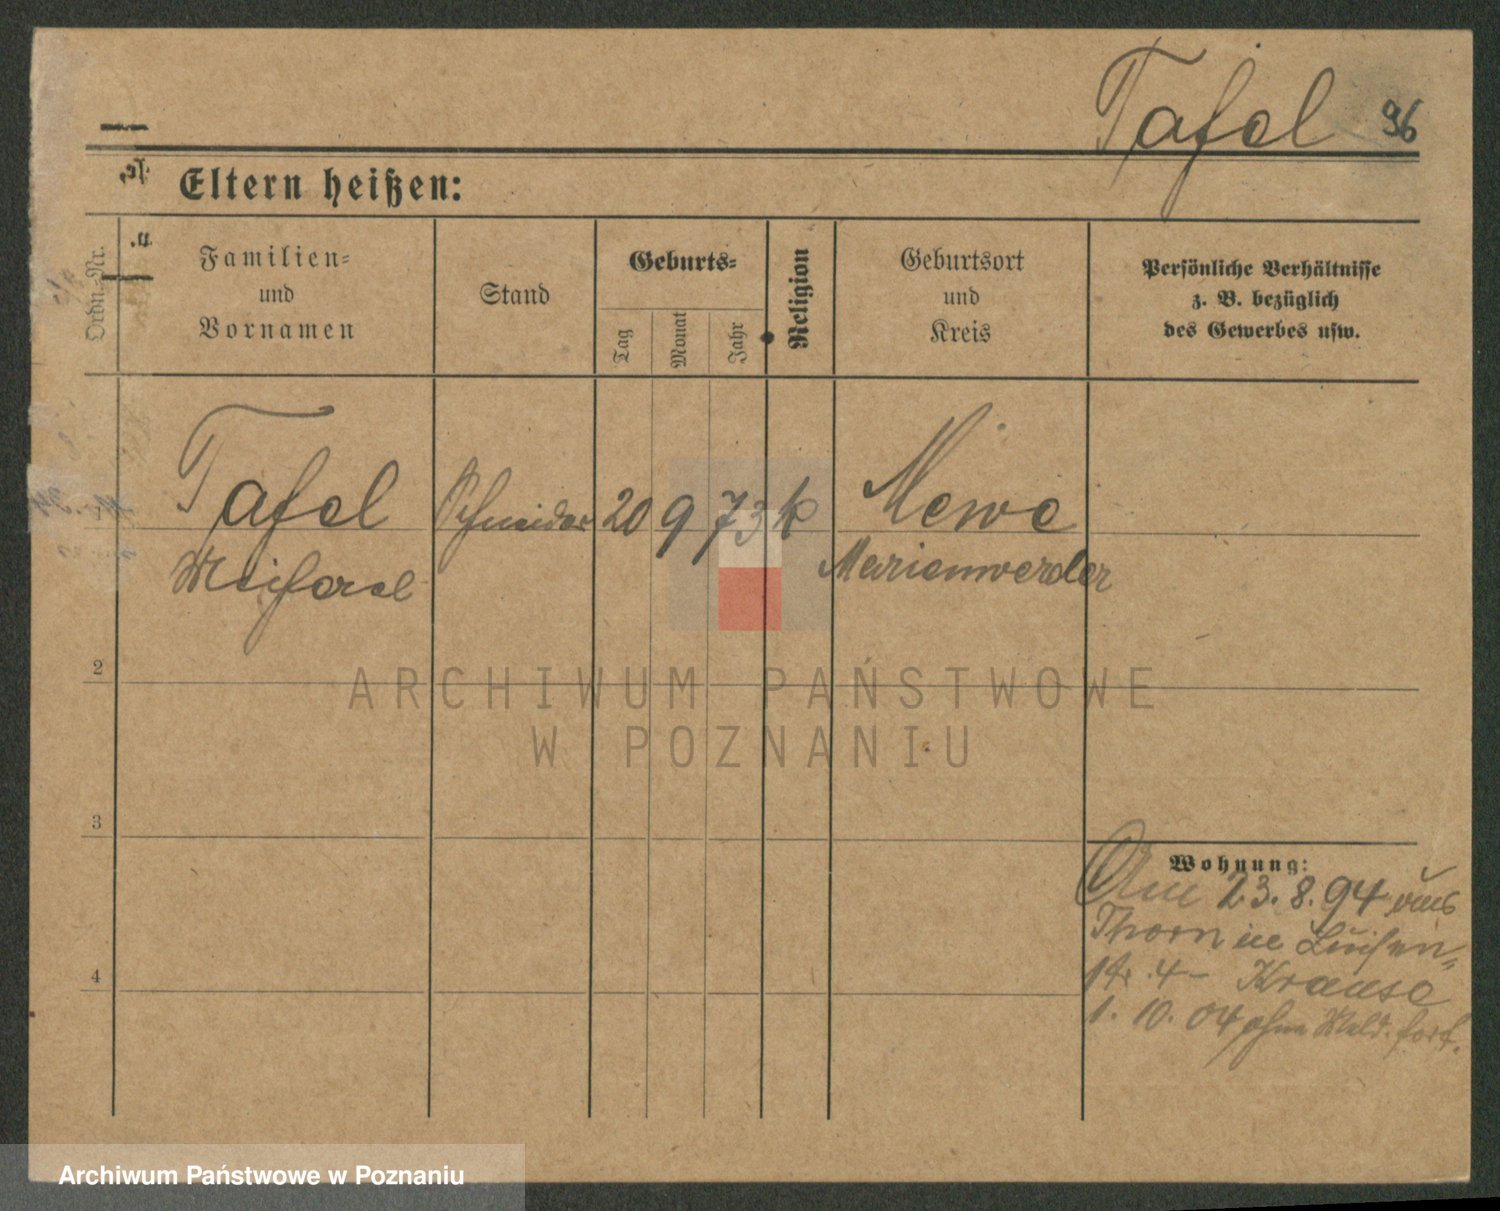 Tafel 96
Eltern heißen:
Ordn.-Nr.
Familien=
und
Vornamen
Stand
Geburts=
Tag
Monat
Jahr
Religion
Geburtsort
und
Kreis
Persönliche Verhältnisse
z. B. bezüglich
des Gewerbes usw.
Tafel Schneider 20 9 73 k Mewe
Marienwerder
2
3
4
Wohnung:
Am 23.8.94 aus
Thorn in Luisen=
str. 4 - Krause
1. 10. 04 ohne Meld. fort.
ARCHIWUM PAŃSTWOWE
W POZNANIU
Archiwum Państwowe w Poznaniu